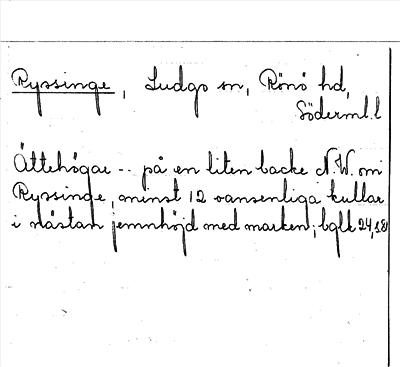 Ryssinge, Ludgo sn, Rönö hd,
Söderml. l
Ättehögar -- på en liten backe N.W. om
Ryssinge, minst 12 vansenliga kullar
i nästan jemnhöjd med marken; bglk 24, s.8